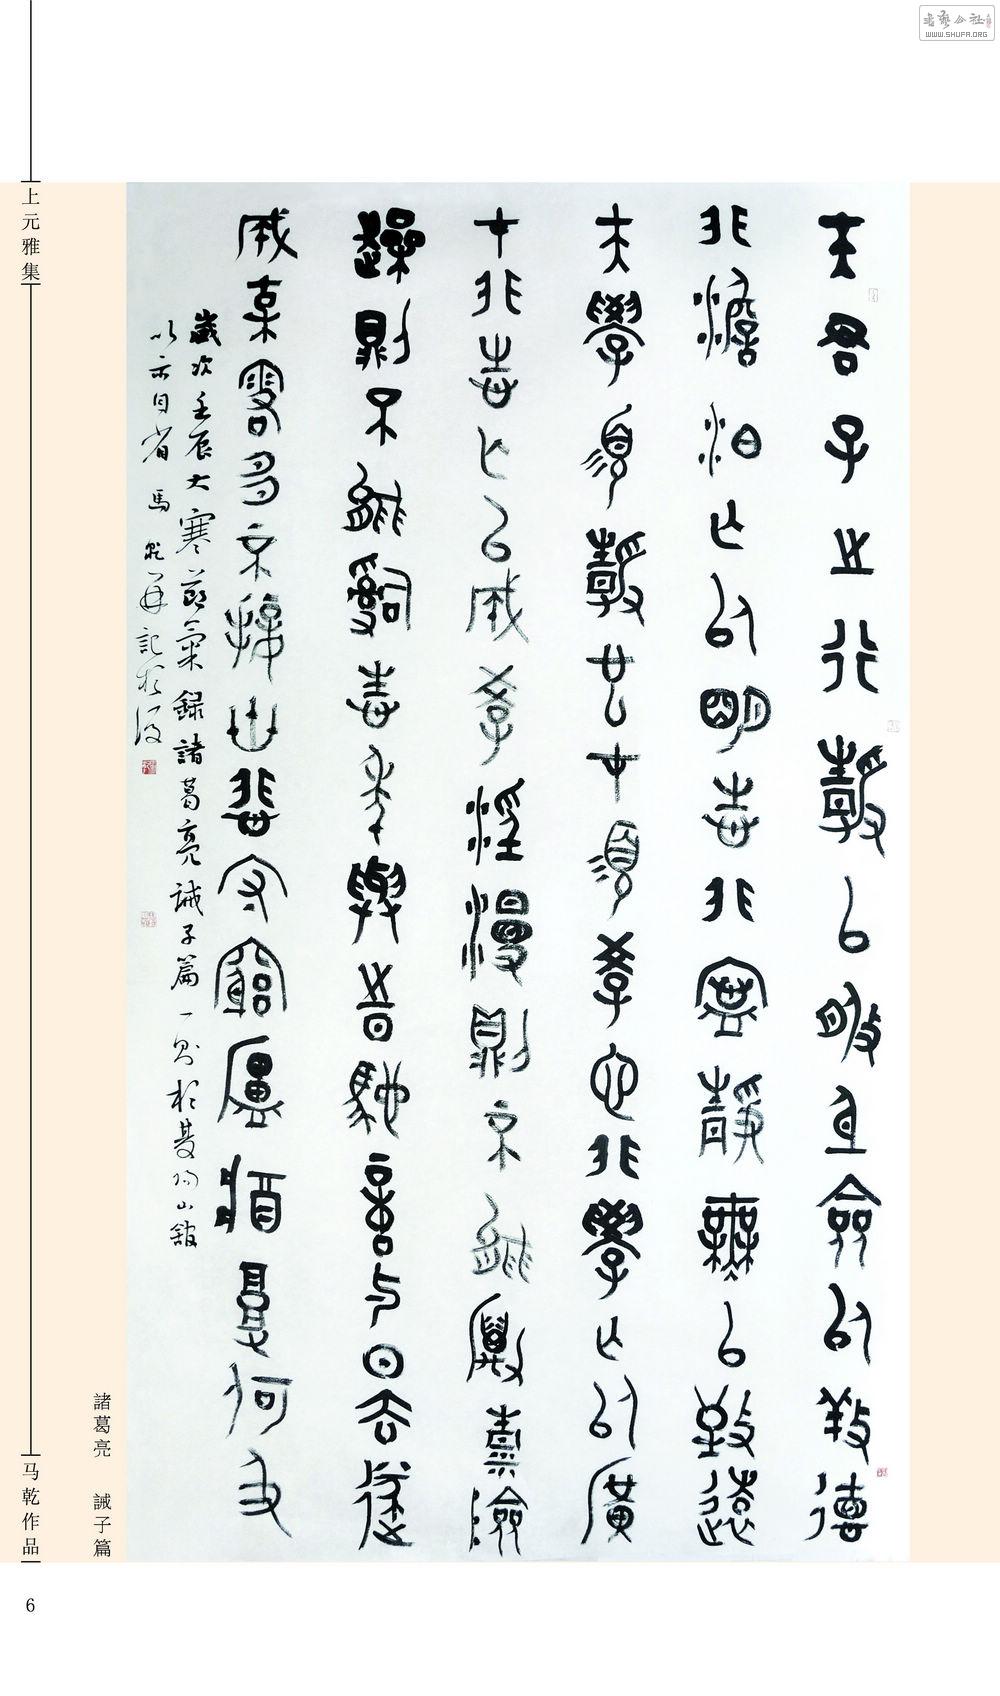 上元雅集
夫君子之行靜以脩身儉以養德
非澹泊亡以明志非寧靜無以致遠
夫學須靜也才須學也非學亡以廣
才非志亡以成學淫漫則不能勵精險
躁則不能治志年與時馳意与日去遂
成枯落多不接世悲守窮廬將復何及
歲次壬辰大寒節氣錄諸葛亮誡子篇一則於山館
以示自省 馬乾并記於
諸葛亮 誡子篇
马乾作品
6
WWW.SHUFA.ORG